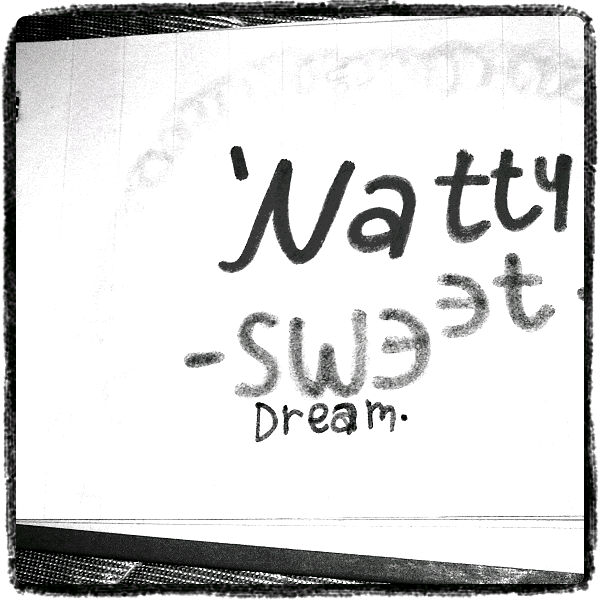 'Natty
-swɛɛt-
Dream.